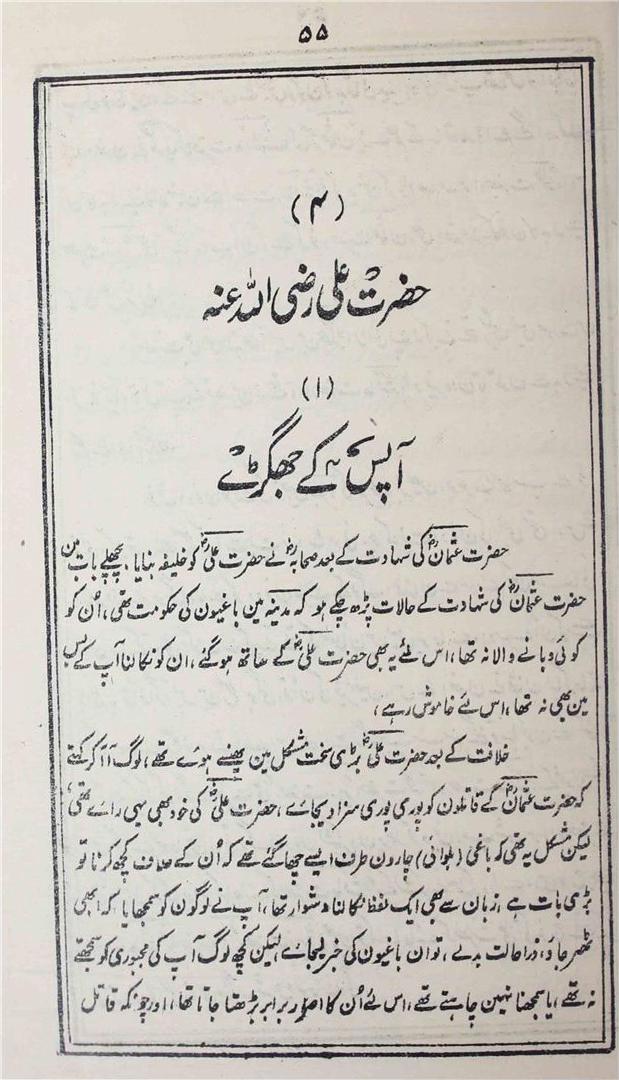 ۵۵
(۴)
حضرت علی رضی اللہ عنہ
(۱)
آپس کے جھگڑے
حضرت عثمانؓ کی شہادت کے بعد صحابہؓ نے حضرت علیؓ کو خلیفہ بنایا، پچھلے باب مین
حضرت عثمانؓ کی شہادت کے حالات پڑھ چکے ہو کہ مدینہ مین باغیون کی حکومت تھی، اُن کو
کوئی دبانے والا نہ تھا، اس لئے یہ بھی حضرت علیؓ کے ساتھ ہو گئے، ان کو نکالنا آپ کے بس
مین بھی نہ تھا، اس لئے خاموش رہے،
خلافت کے بعد حضرت علیؓ بڑی سخت مشکل مین پھنسے ہوے تھے، لوگ آ آ کر کہتے
کہ حضرت عثمانؓ کے قاتلون کو پوری پوری سزا دیجاے، حضرت علیؓ کی خود بھی یہی راے تھی،
لیکن مشکل یہ تھی کہ باغی (بلوائی) چارون طرف ایسے چھا گئے تھے کہ اُن کے خلاف کچھ کرنا تو
بڑی بات ہے، زبان سے بھی ایک لفظ نکالنا دشوار تھا، آپ نے لوگون کو سمجھایا کہ ابھی
ٹھر جاؤ، ذرا حالت بدلے، تو ان باغیون کی خبر لیجاے، لیکن کچھ لوگ آپ کی مجبوری کو سمجھتے
نہ تھے، یا سمجھنا نہین چاہتے تھے، اس لئے اُن کا اصرار برابر بڑھتا جاتا تھا، اور چونکہ قاتل